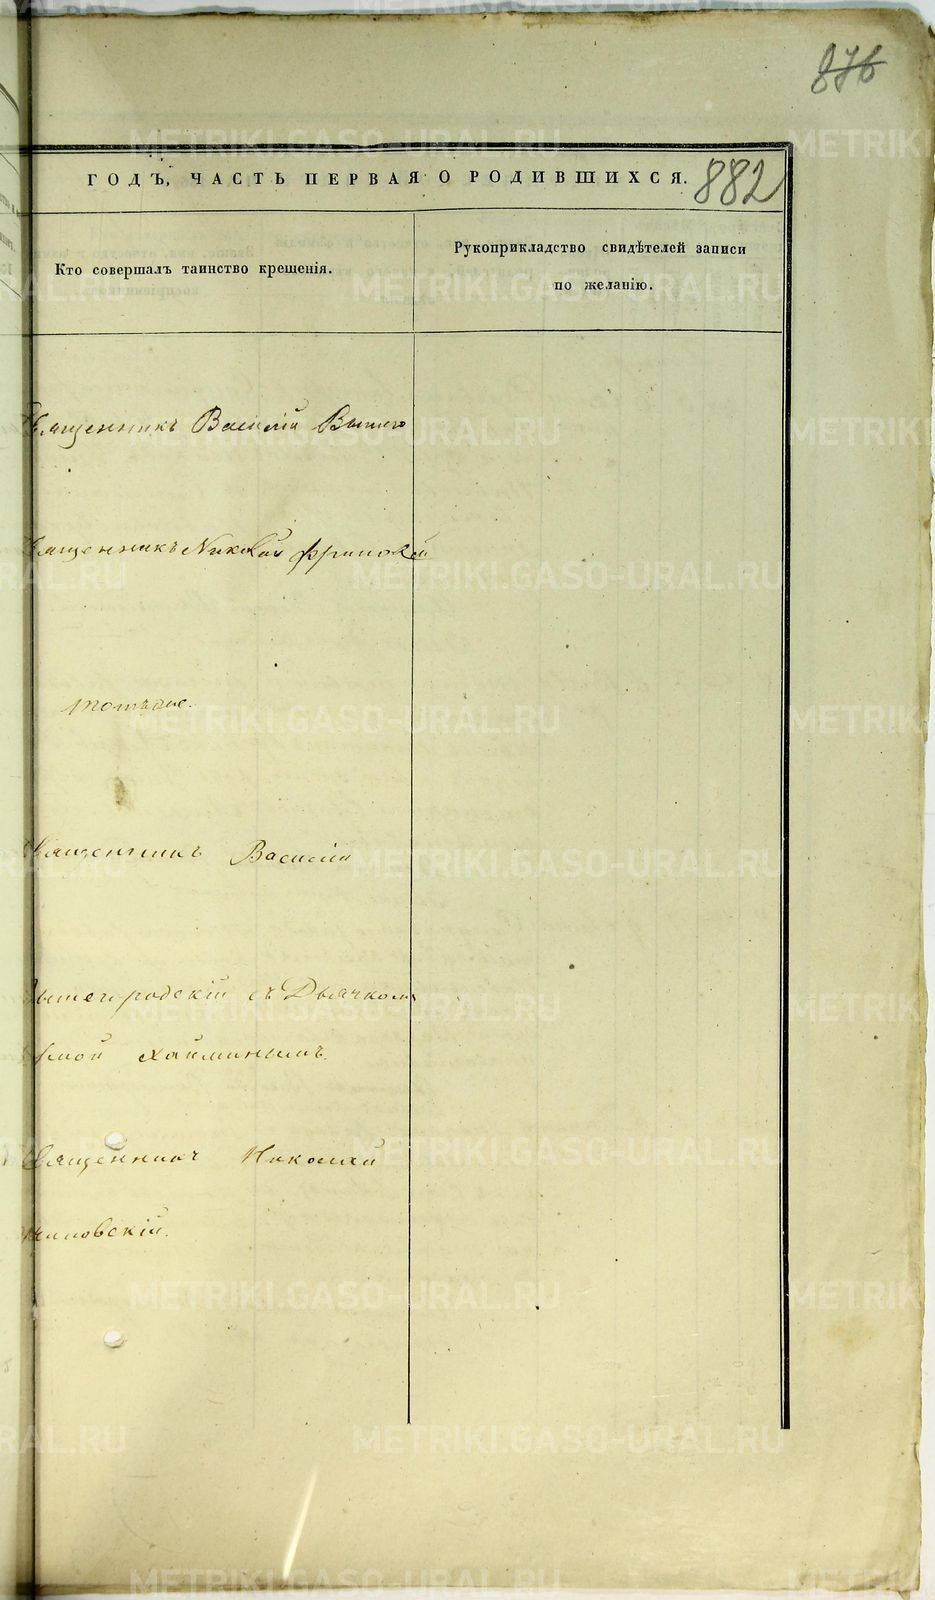 876
ГОДЪ, ЧАСТЬ ПЕРВАЯ О РОДИВШИХСЯ. 882
Кто совершалъ таинство крещенія.
Рукоприкладство свидѣтелей записи
по желанію.
Священникъ Василій Вышего
Священникъ Николай
тотъ же.
Священникъ Василій
Вышегородскій съ Дьячкомъ
Священникъ Николай
METRIKI.GASO-URAL.RU